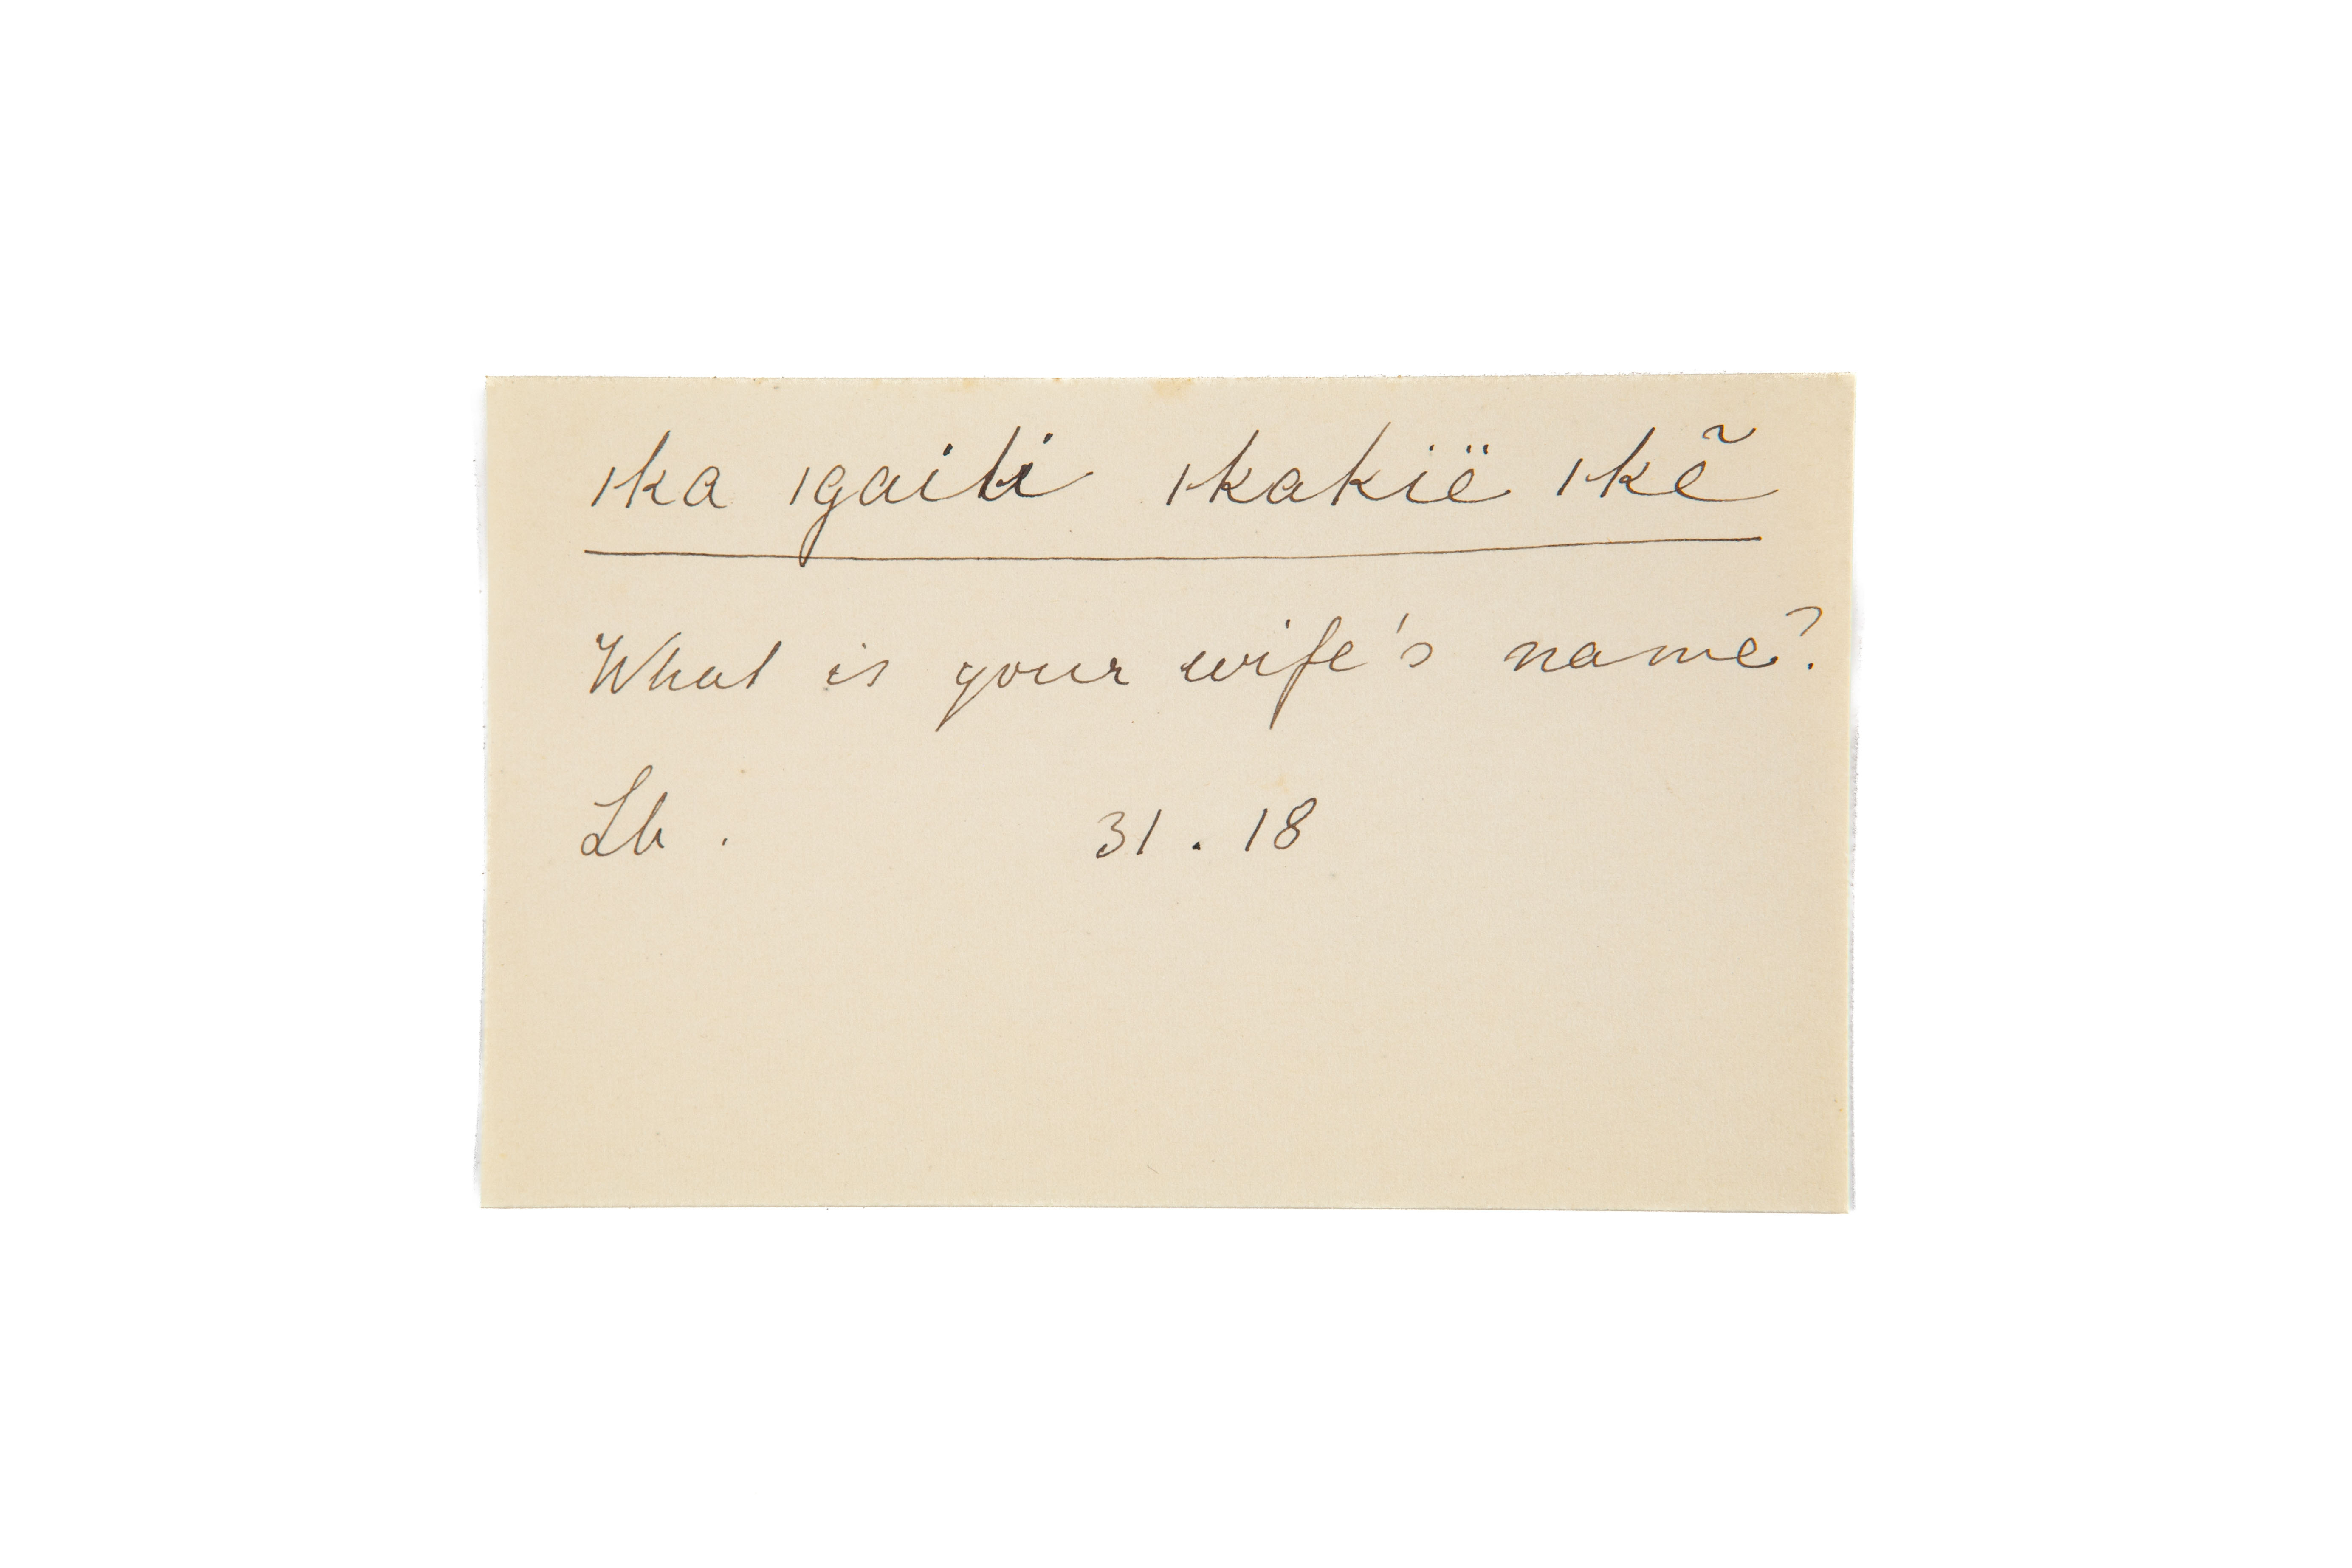 ıka ıgaiti ıkakïë ıkẽ
What is your wife's name?
Lb. 31.18